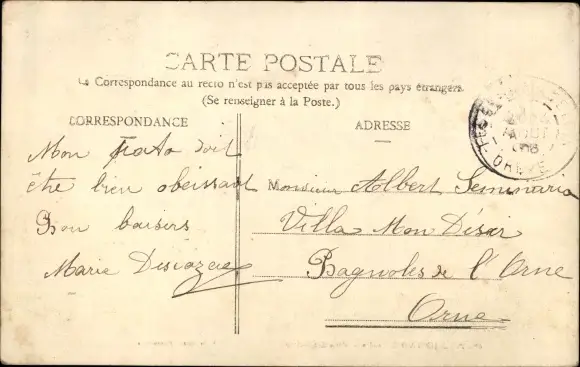 CARTE POSTALE
La Correspondance au recto n'est pas acceptée par tous les pays étrangers
(Se renseigner à la Poste.)
CORRESPONDANCE
Mon
doit
être bien obeissant
Bon baisers
Marie
ADRESSE
Monsieur Albert Seminario
Villa Mon Désir
Bagnoles de l'Orne
Orne
AOUT
08
ORNE